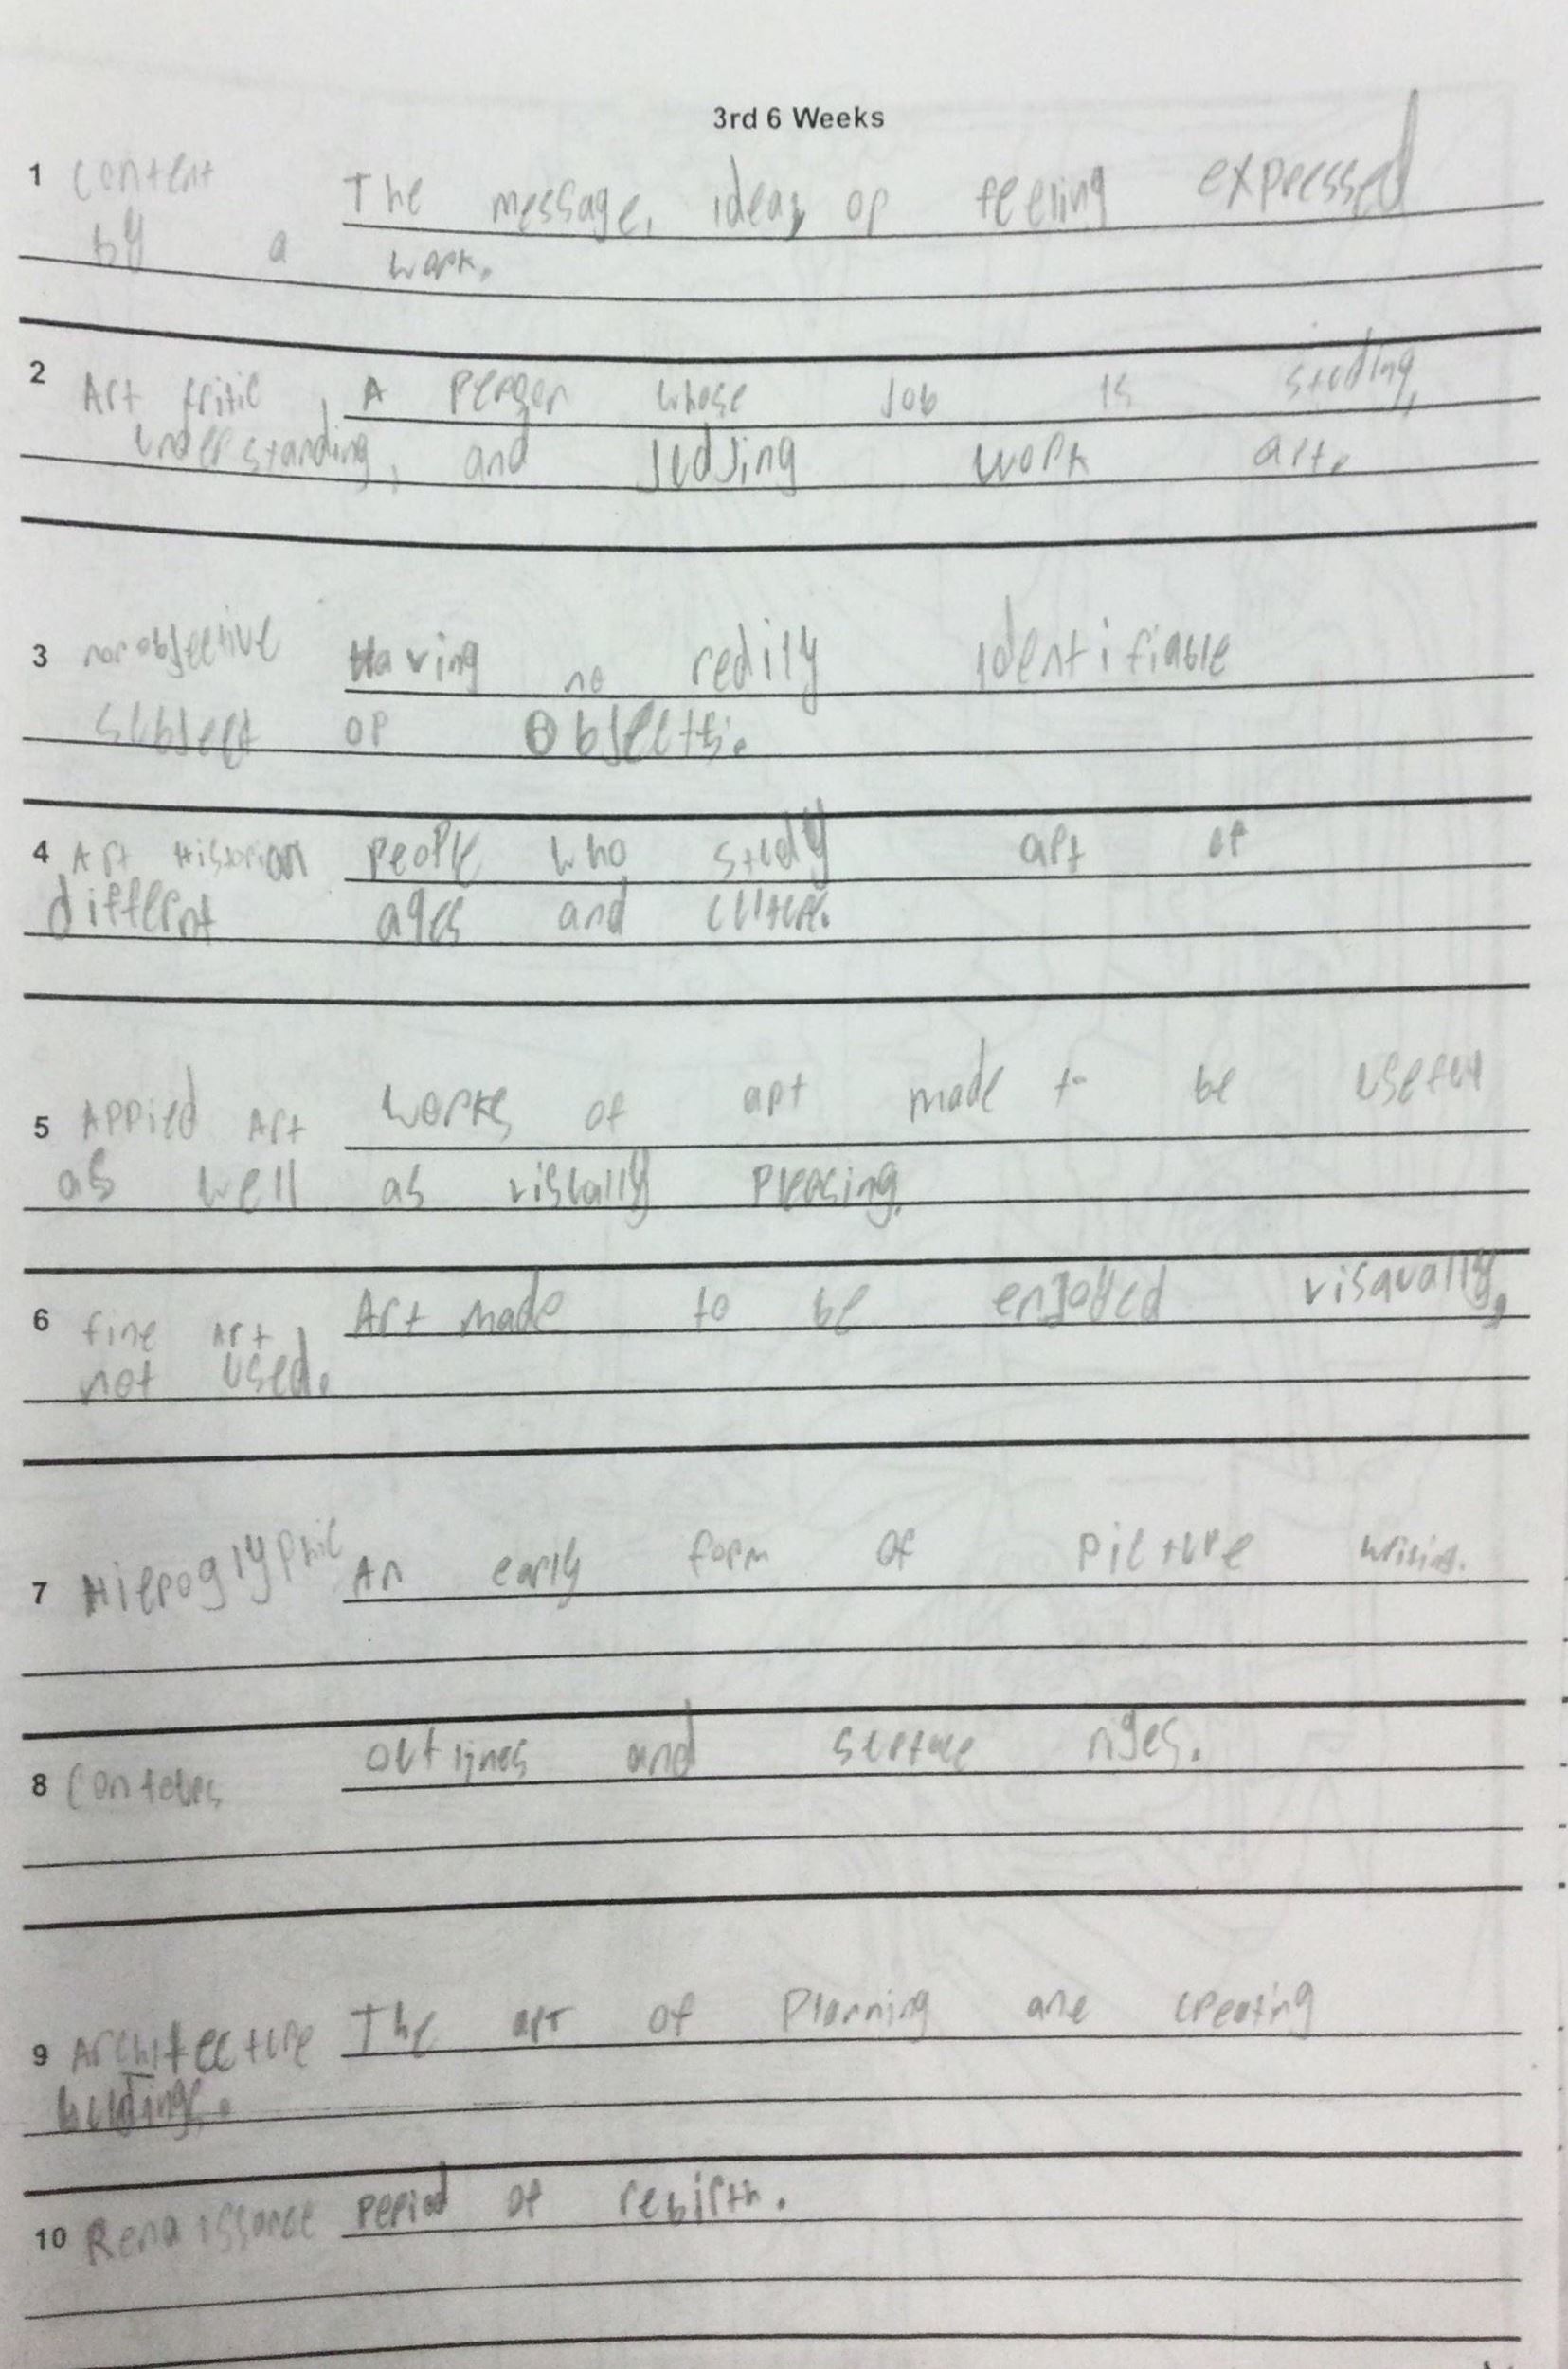 3rd 6 Weeks
1 Content The message, idea, or feeling expressed
by a work.
2 Art critic, A Person whose Job is studing,
understanding, and Judjing work art.
3 nonobjective Having no redily Identifiable
subject or Objects.
4 Art Historian People who study art of
different ages and culture.
5 Appied Art works of art made to be useful
as well as visually Pleasing.
6 fine Art, Art made to be enjoyed visaually,
not used.
7 Hieroglyphic An early form of Picture
8 Contours outlines and surface
9 Architecture The art of Planning ane creating
10 Renaissance Period of rebirth.